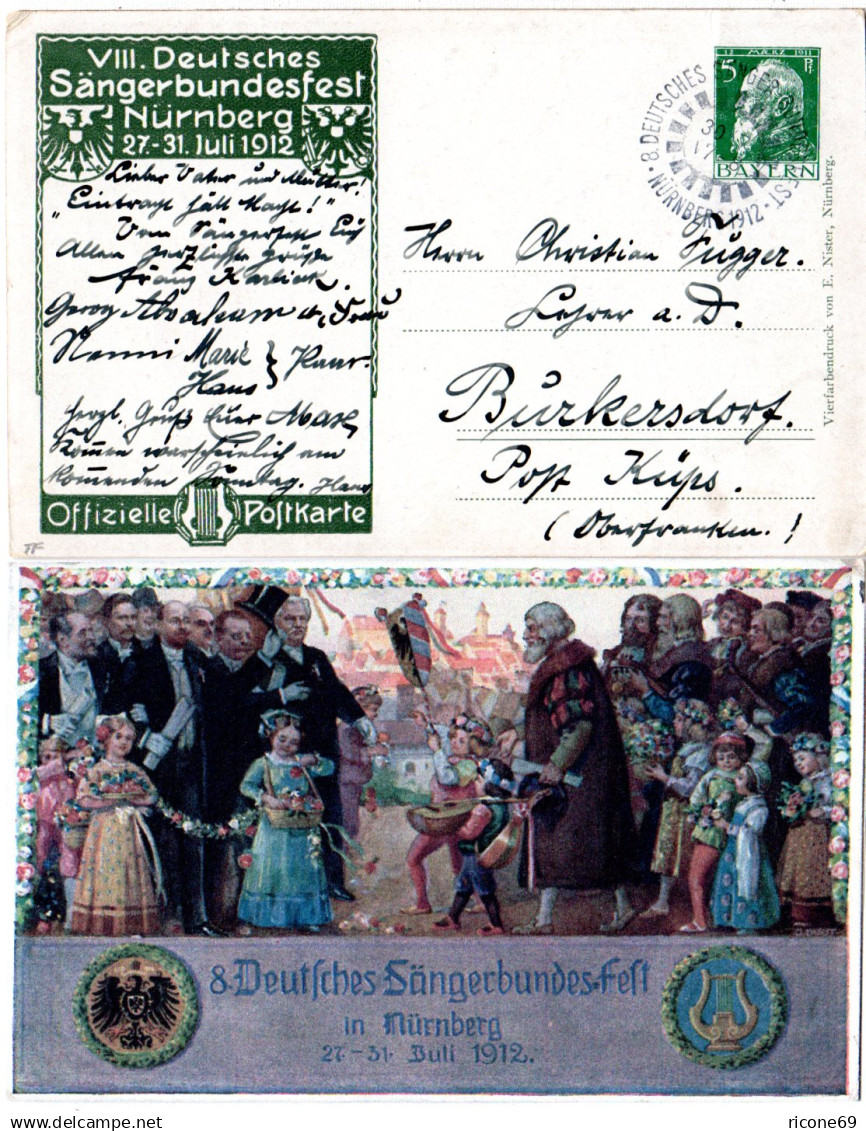 VIII. Deutsches
Sängerbundesfest
Nürnberg
27.-31. Juli 1912
Lieber Vater und Mutter!
"Eintracht hält Macht!"
Vom Sängerfest Euch
Allen herzlichste Grüße
Franz
Georg Abraham u. Frau
Nanni Marie
Hans
herzl. Gruß Euer Max
Kommen warscheinlich am
kommenden Sonntag. Hans
Offizielle Postkarte
12. MÄRZ 1911
5 Pf.
BAYERN
8. DEUTSCHES SÄNGERBUNDESFEST
NÜRNBERG 1912
30
Herrn Christian Függer.
Lehrer a. D.
Burkersdorf.
Post Küps.
(Oberfranken.!
Vierfarbendruck von E. Nister, Nürnberg.
8. Deutsches Sängerbundes-Fest
in Nürnberg
27.-31. Juli 1912.
ricone69